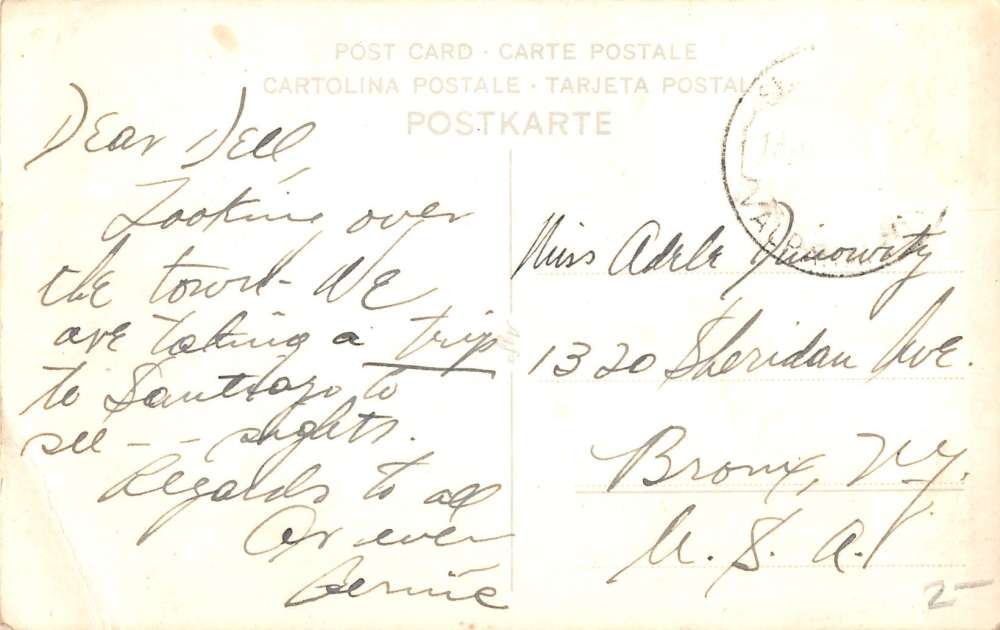 POST CARD · CARTE POSTALE
CARTOLINA POSTALE · TARJETA POSTAL
POSTKARTE
Dear Dell,
Looking over
the town - We
are taking a trip
to Santiago to
see - - sights.
Regards to all
As ever
Bernie
Miss Adele
1320 Sheridan Ave.
Bronx, N.Y.
U. S. A.
2-